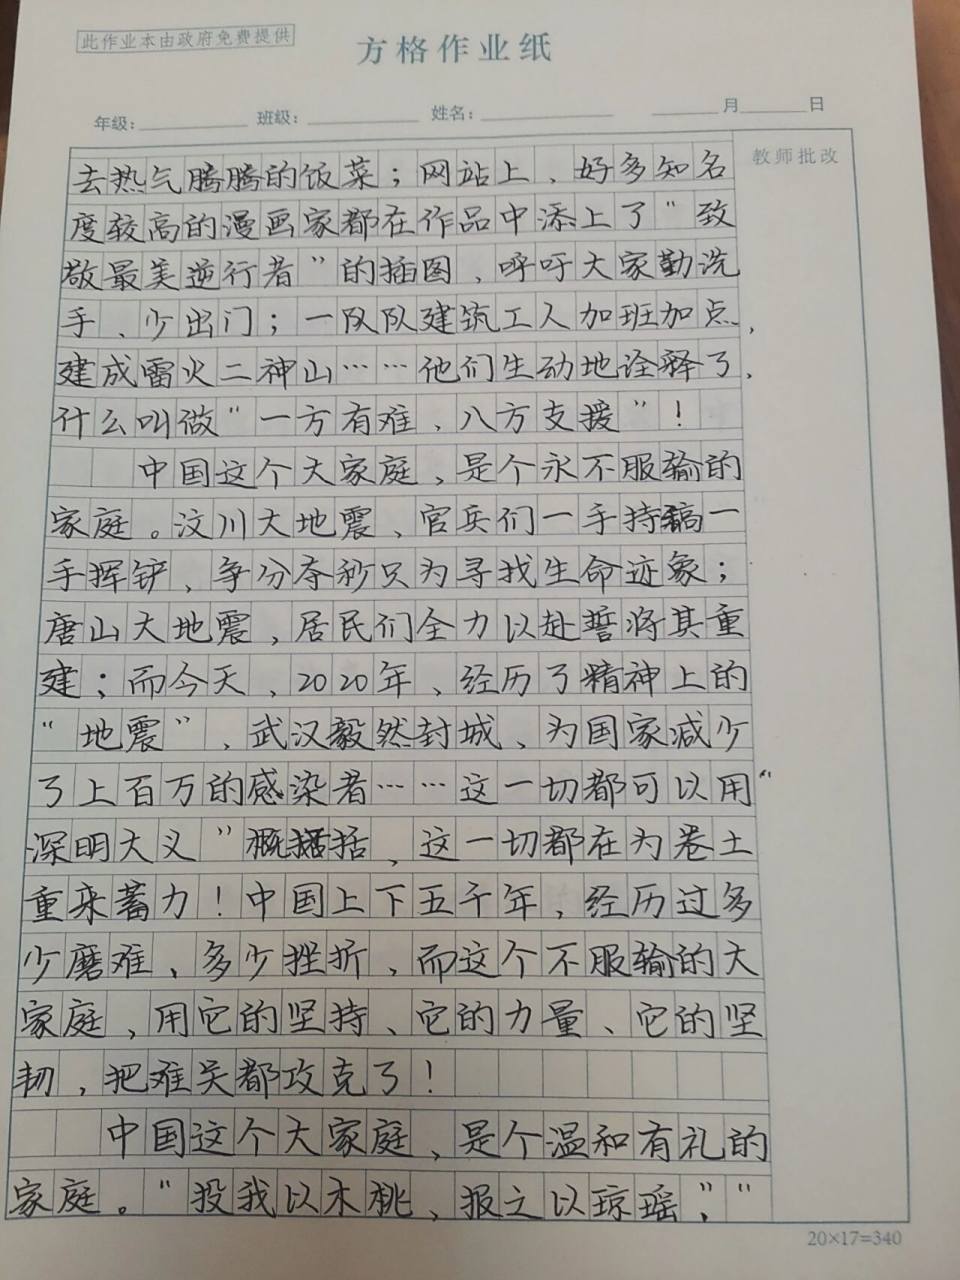 此作业本由政府免费提供
方格作业纸
年级： 班级： 姓名： 月 日
教师批改
去热气腾腾的饭菜；网站上，好多知名
度较高的漫画家都在作品中添上了“致
敬最美逆行者”的插图，呼吁大家勤洗
手、少出门；一队队建筑工人加班加点，
建成雷火二神山……他们生动地诠释了，
什么叫做“一方有难，八方支援”！
中国这个大家庭，是个永不服输的
家庭。汶川大地震，官兵们一手持镐一
手挥铲，争分夺秒只为寻找生命迹象；
唐山大地震，居民们全力以赴誓将其重
建；而今天，2020年，经历了精神上的
“地震”，武汉毅然封城，为国家减少
了上百万的感染者……这一切都可以用“
深明大义”概括，这一切都在为卷土
重来蓄力！中国上下五千年，经历过多
少磨难、多少挫折，而这个不服输的大
家庭，用它的坚持、它的力量、它的坚
韧，把难关都攻克了！
中国这个大家庭，是个温和有礼的
家庭。“投我以木桃，报之以琼瑶，”“
20×17=340